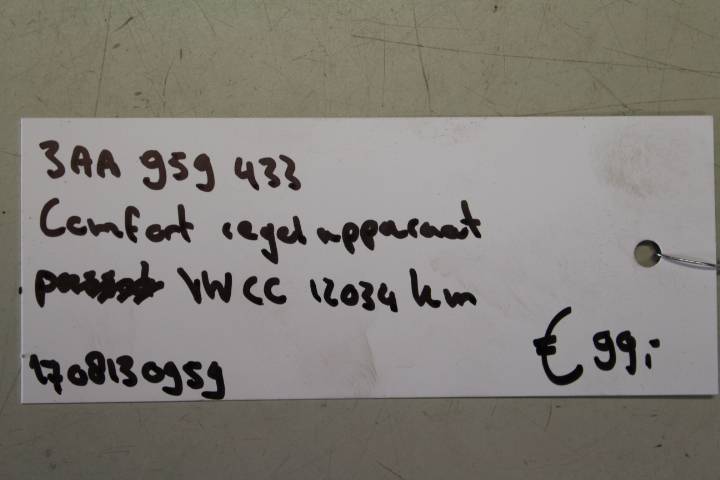 3AA 959 433
Comfort regel apparaat
VW CC 12034 km
1708130959
€ 99,-